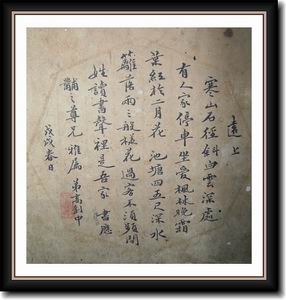 遠上
寒山石徑斜白雲深處
有人家停車坐愛楓林晚霜
葉紅於二月花 池塘四五尺深水
籬落兩三般樣花過客不須頻問
姓讀書聲裡是吾家 書應
黼之尊兄雅屬 弟
戊戌春日